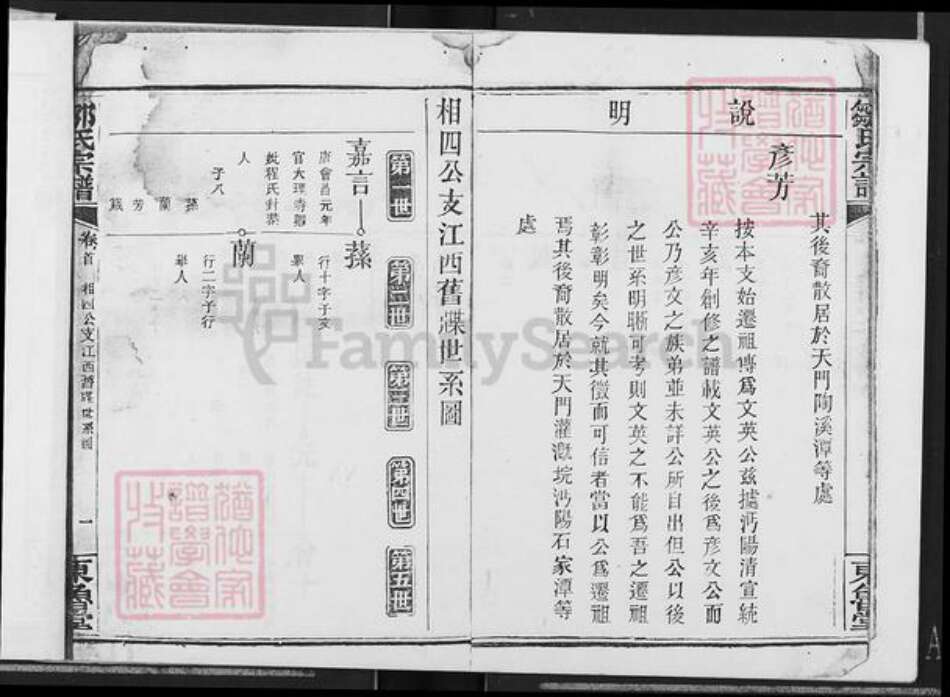 鄒氏宗譜
東魯堂
說明
其後裔散居於天門陶溪潭等處
彥芳
按本支始遷祖嗎爲文英公茲據沔陽清宣統
辛亥年創修之譜載文英公之後爲彥文公而
公乃彥文之族弟並未詳公所自出但公以後
之世系明晰可考則文英之不能爲吾之遷祖
彰彰明矣今就其徵而可信者當以公爲遷祖
焉其後裔散居於天門灌漑垸沔陽石家潭等
處
相四公支江西舊牒世系圖
第一世
第二世
第三世
第四世
第五世
嘉言
唐會昌元年
官大理寺卿
娶程氏封恭
人
子八
蓀 蘭 芳
蓀
行十字子亥
舉人
蘭
行二字子行
舉人
鄒氏宗譜
卷首
相四公支江西舊牒世系圖
一
東魯堂
FamilySearch
猶他家譜學會收藏
猶他家譜學會收藏